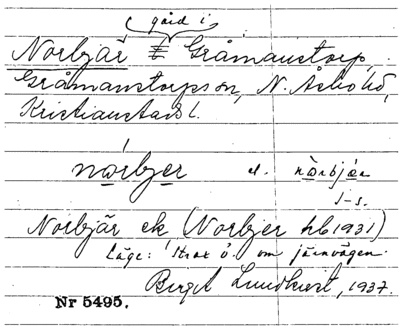 gård i
Norbjär Gråmanstorp,
Gråmanstorps sn, N. Åsbo hd,
Kristianstads l.
nórbjer el. nòrbjær
J-s.
Norbjär ek (Norbjer hb 1931)
Läge: Strax ö. om järnvägen.
Birgit Lundkvist, 1937.
Nr 5495.